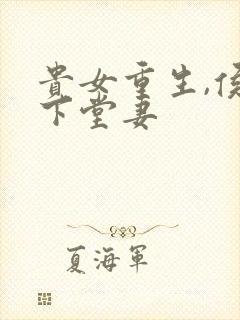 貴女重生,侯
下堂妻
夏海軍